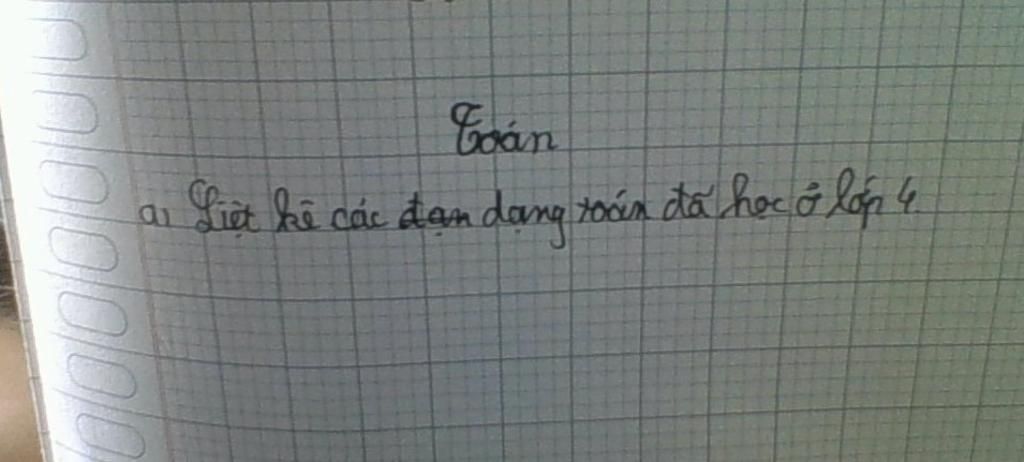 Toán
a, Liệt kê các đạn dạng toán đã học ở lớp 4.